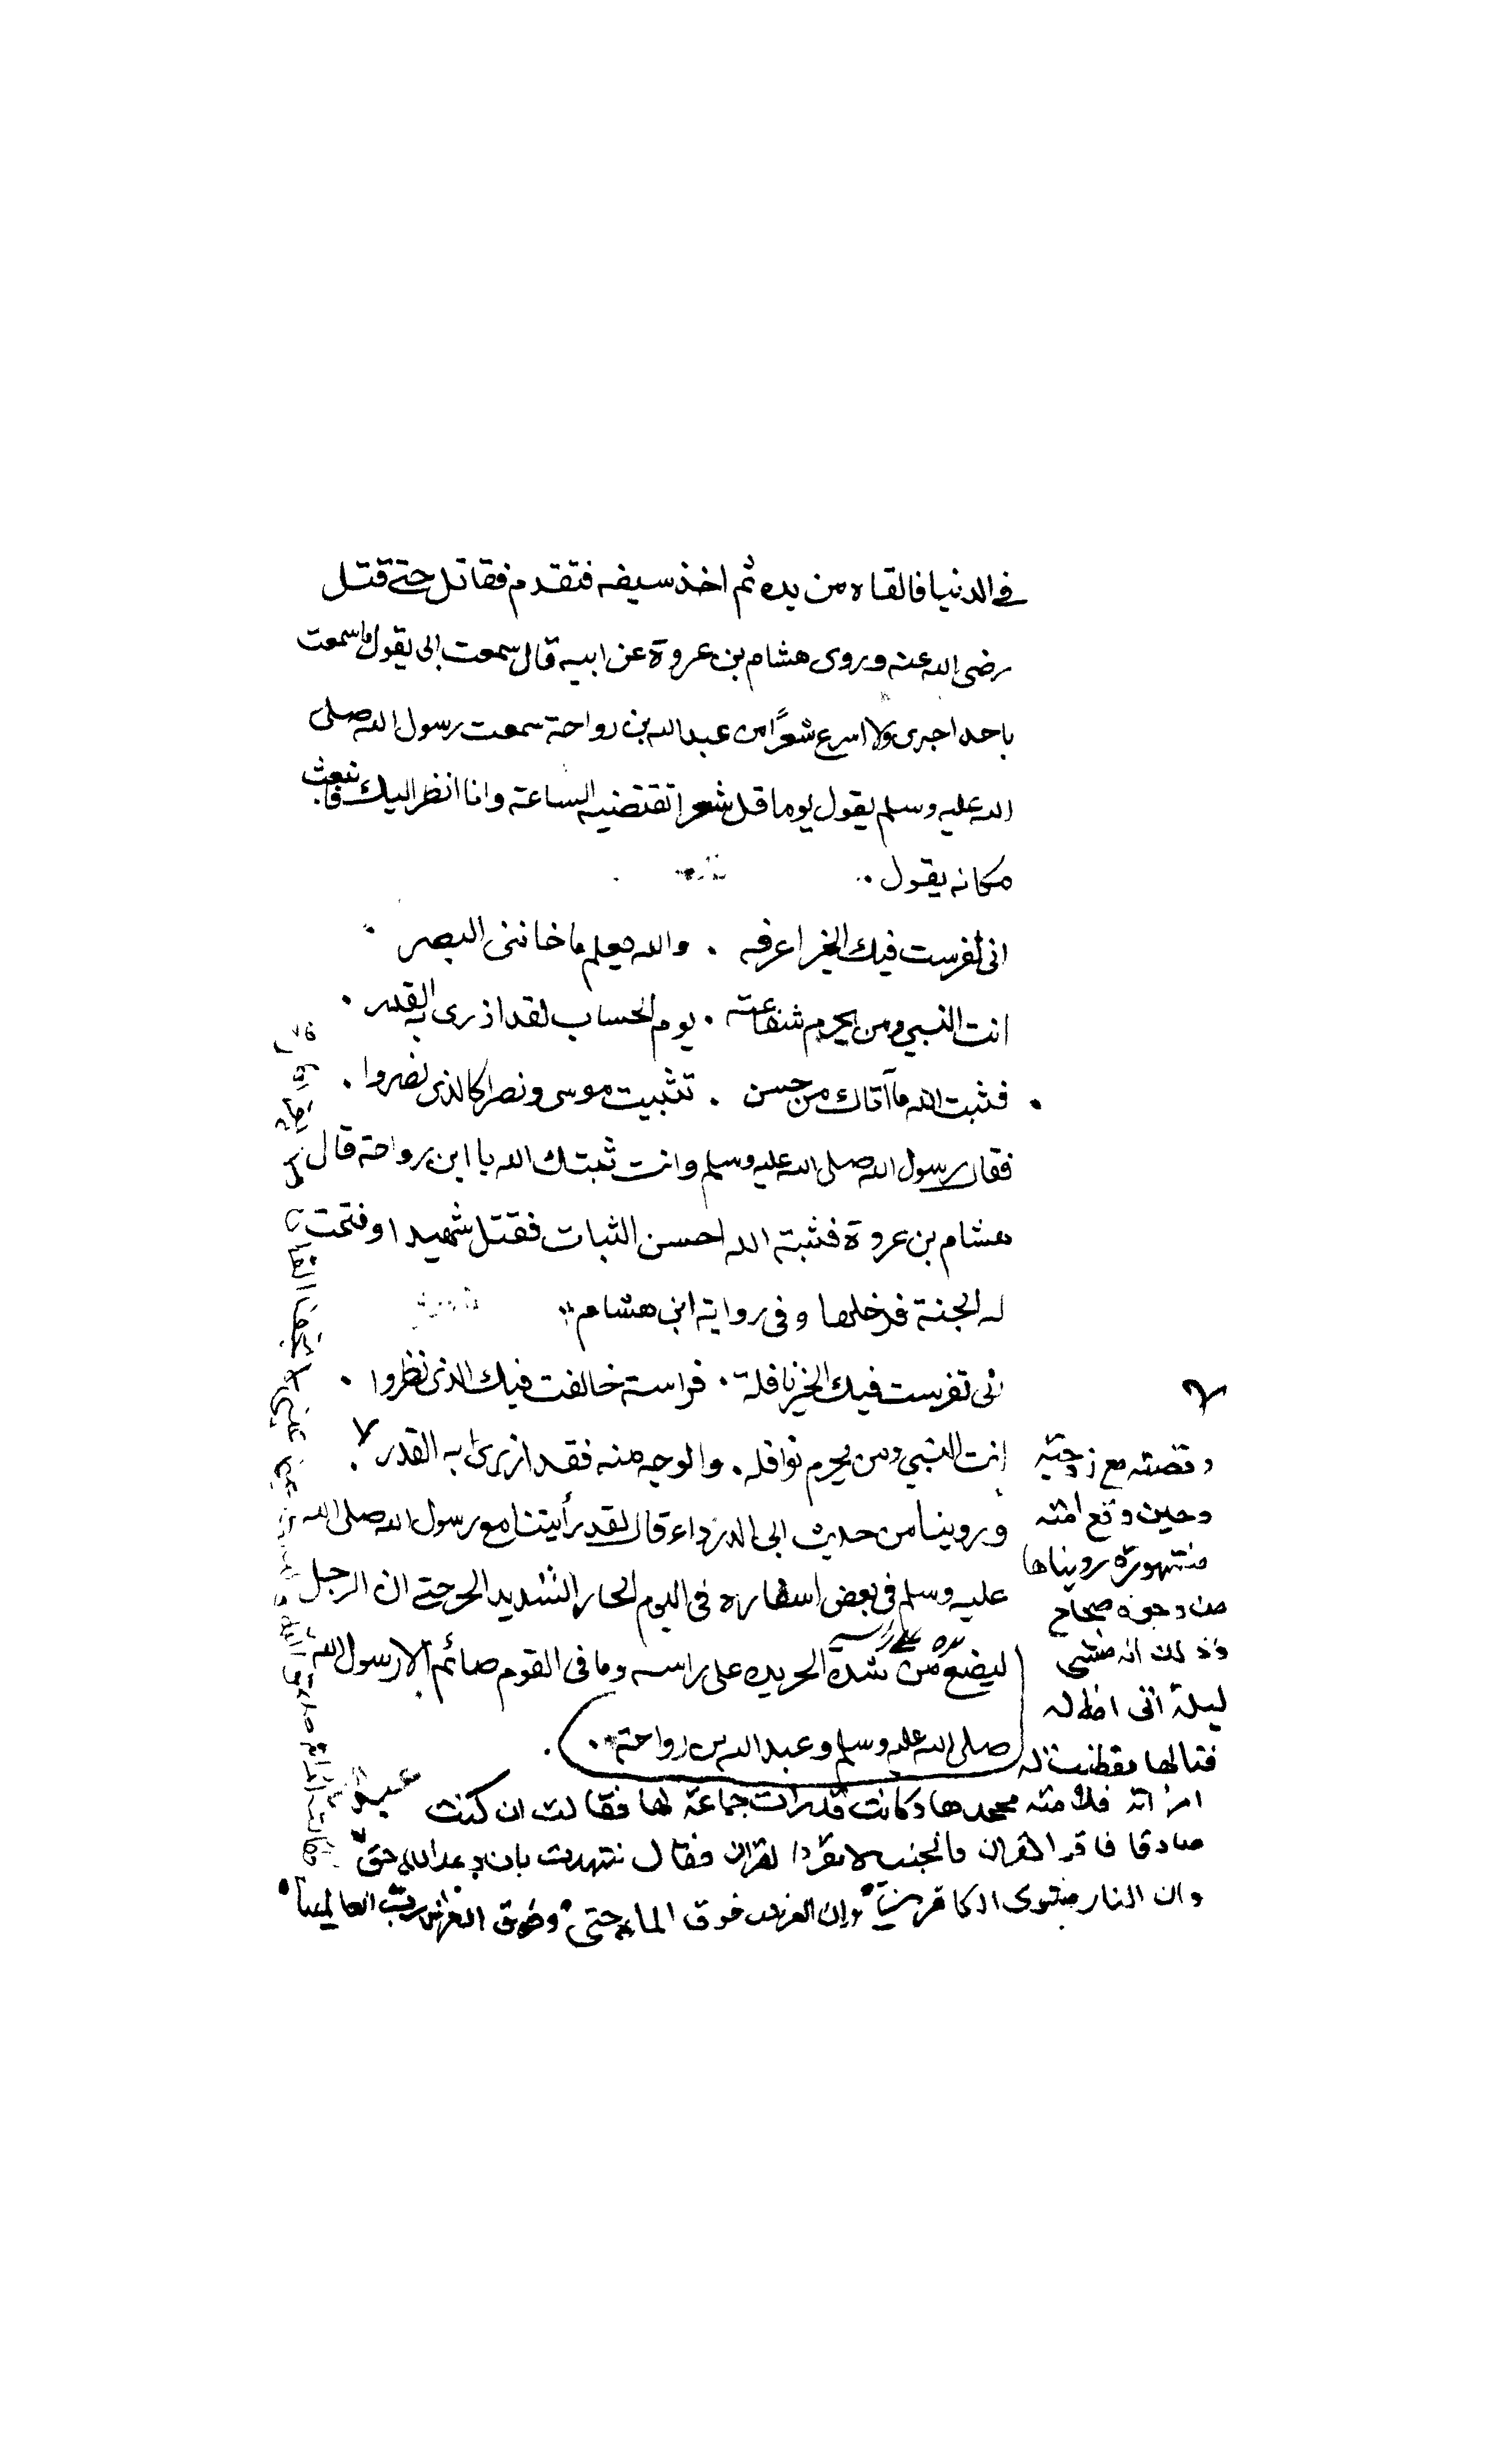 في الدنيا فالقاه من يده ثم اخذ سيفه فتقدم فقاتل حتى قتل
رضى الله عنه وروى هشام بن عروة عن ابيه قال سمعت ابى يقول ما سمعت
باحد اجرى ولا اسرع شعرًا من عبد الله بن رواحة سمعت رسول الله صلى
الله عليه وسلم يقول يوما قل شعرا تقتضيه الساعة وانا انظر اليك فانبعث
مكانه يقول
انى تفرست فيك الخير اعرفه . والله يعلم ما خاننى البصر .
انت النبي ومن يحرم شفاعته . يوم الحساب لقد ازرى به القدر .
. فثبت الله ما آتاك من حسن . تثبيت موسى ونصرا كالذى نصروا .
فقال رسول الله صلى الله عليه وسلم وانت ثبتك الله يا ابن رواحة قال
هشام بن عروة فثبته الله احسن الثبات فقتل شهيدا وفتحت
له الجنة فدخلها وفى رواية ابن هشام
انى تفرست فيك الخير نافلة . فراسة خالفت فيك الذى نظروا .
انت النبي ومن يحرم نوافله . والوجه منه فقد ازرى به القدر .
وروينا من حديث ابى الدرداء قال لقد رأيتنا مع رسول الله صلى الله
عليه وسلم فى بعض اسفاره فى اليوم الحار الشديد الحر حتى ان الرجل
ليضع من شدة الحر يده على راسه وما فى القوم صائم الا رسول الله
صلى الله عليه وسلم وعبد الله بن رواحة .
وقصته مع زوجته
وحين وقع امته
مشهورة رويناها
من وجوه صحاح
وذلك انه مشى
ليلة الى امة له
فنالها وفطنت له
امراته فلامته فجحدها وكانت قد رات جماعه لها فقالت ان كنت
صادقا فاقرا القران فالجنب لا يقرا القران فقال شهدت بان وعد الله حق
وان النار مثوى الكافرينا وان العرش فوق الماء حق وفوق العرش رب العالمينا